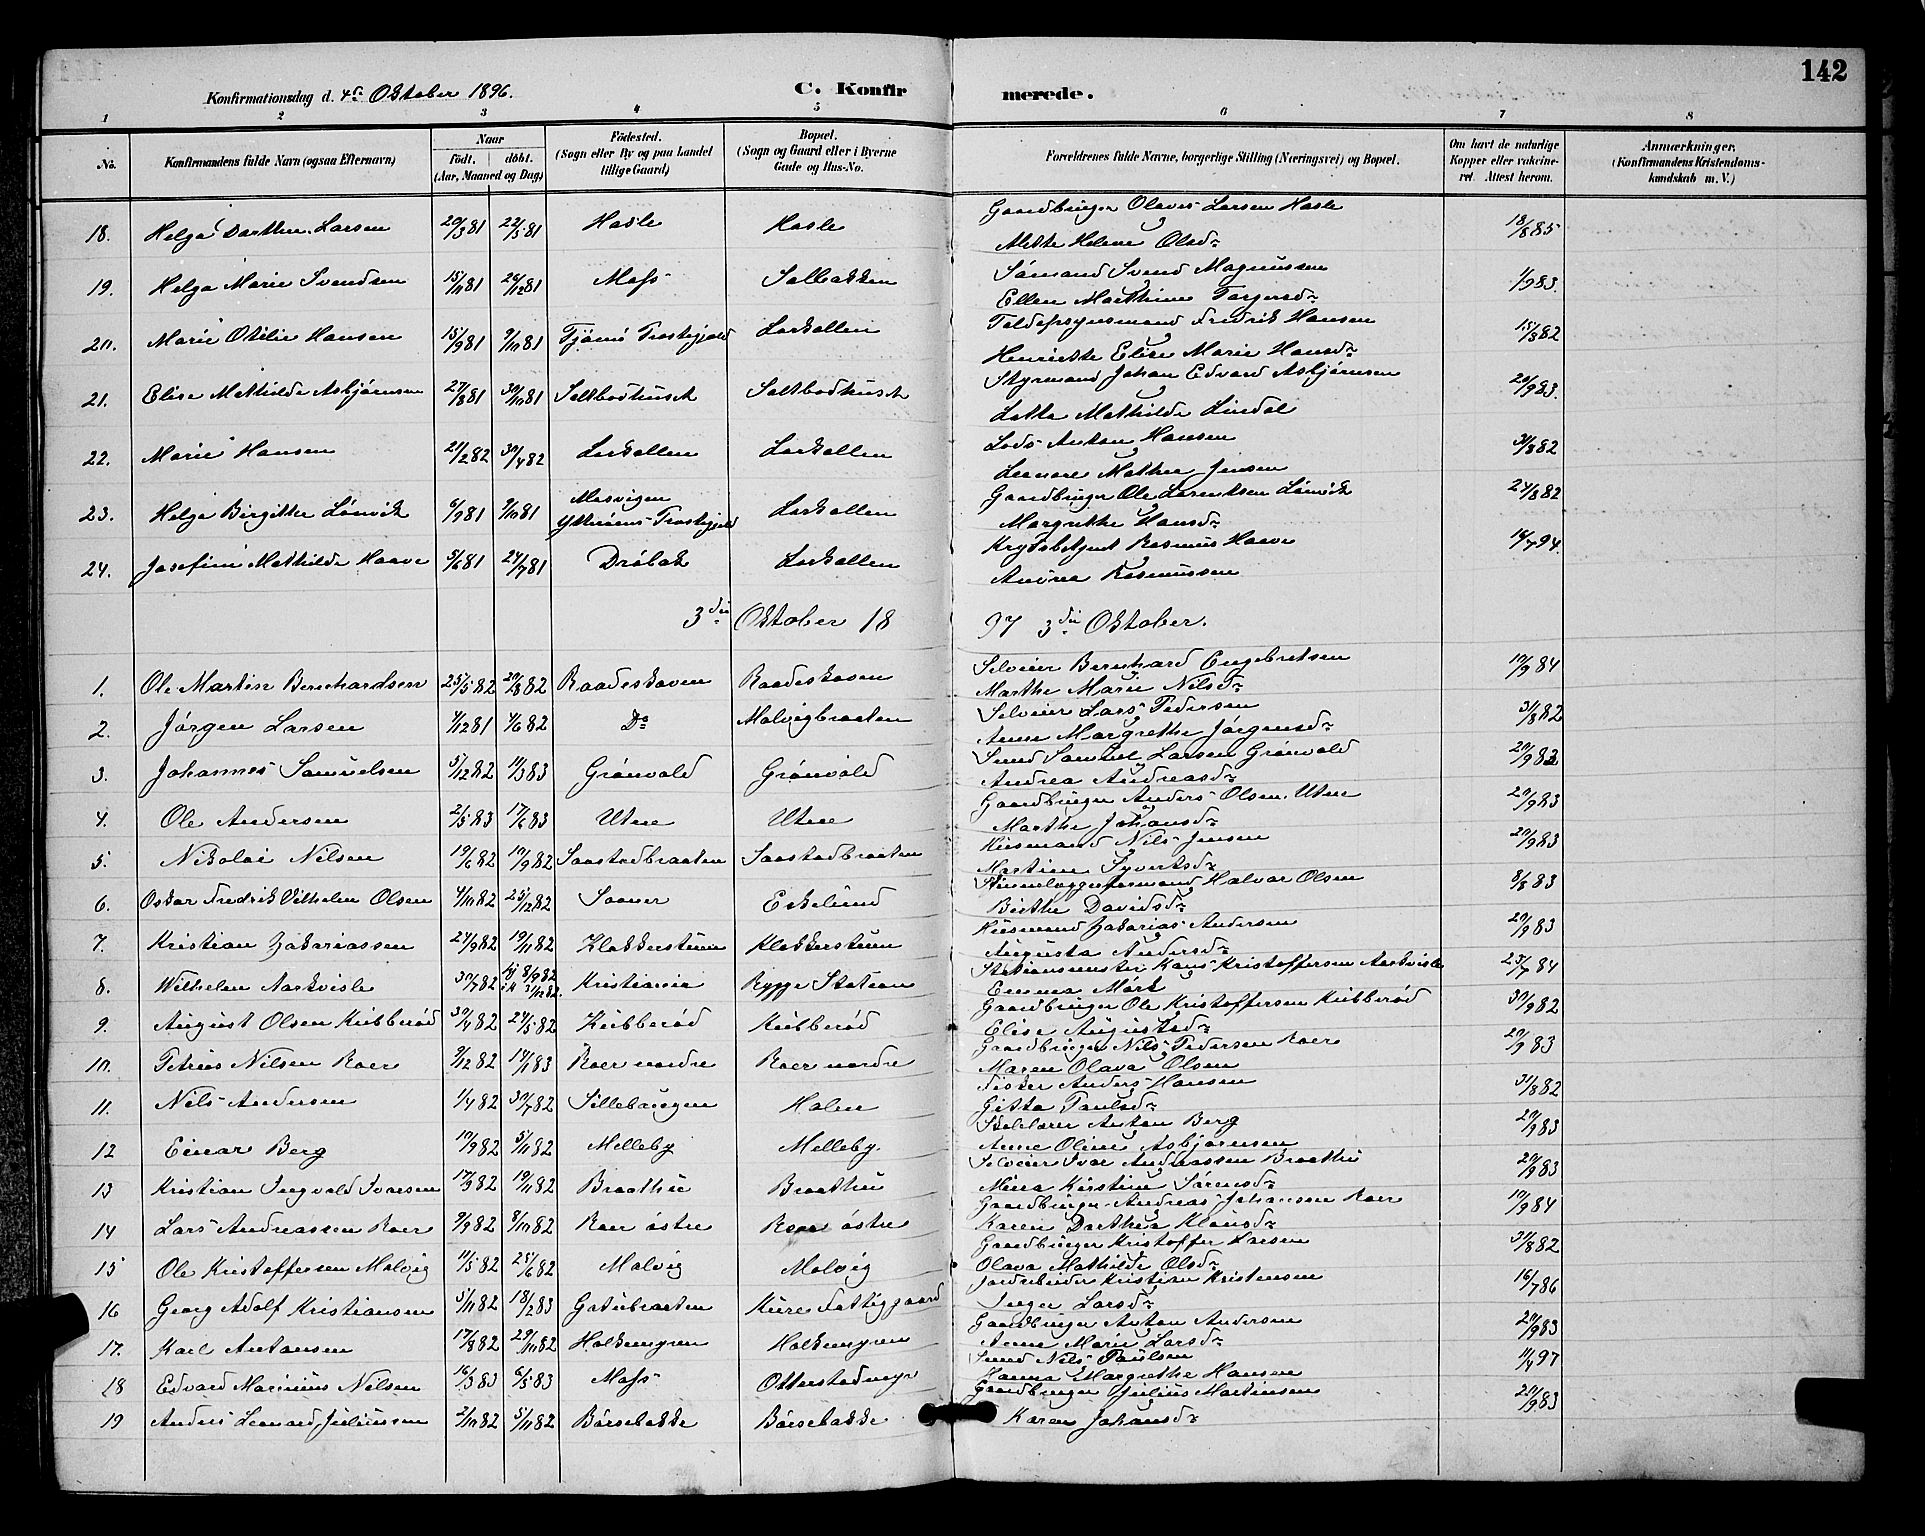 142
Konfirmationsdag d. 4de Oktober 1896. C. Konfirmerede.
1 2 3 4 5 6 7 8
No. Konfirmandens fulde Navn (ogsaa Efternavn) Naar födt. döbt. (Aar, Maaned og Dag) Födested. (Sogn eller By og paa Landet tillige Gaard) Bopæl. (Sogn og Gaard eller i Byerne Gade og Hus-No. Forældrenes fulde Navne, borgerlige Stilling (Næringsvei) og Bopæl. Om havt de naturlige Kopper eller vakcineret. Attest herom. Anmærkninger. (Konfirmandens Kristendomskundskab m. V.)
18. Helga Dorthea Larsen 20/3 81 22/5 81 Hasle Hasle Gaardbruger Olaves Larsen Hasle 18/8 85
Mette Helene Olsd.
19. Helga Marie Svendsen 15/11 81 26/12 81 Moss Solbakken Sömand Svend Magnussen 1/9 83.
Ellen Marthine Torgersd.
20. Marie Otilie Hansen 15/9 81 9/10 81 Tjömö Prestegjeld Larkollen Toldopsynsmand Fredrik Hansen 15/8 82
Henriette Elise Marie Hansd.
21. Elise Mathilde Asbjörnsen 27/8 81 30/10 81 Saltbodhuset Saltbodhuset Styrmand Johan Edvard Asbjörnsen 20/9 83.
Lotte Mathilde Lindal
22. Marie Hansen 21/2 82 30/4 82 Larkollen Larkollen Lods Anton Hansen 31/8 82
Leonore Mathea Jensen
23. Helga Birgitte Lönvik 6/9 81 9/10 81 Mosvigen Ytteröens Prestegjeld Larkollen Gaardbruger Ole Larentsen Lönvik 24/8 82
Margrethe Hansd.
24. Josefine Mathilde Haave 5/6 81 24/7 81 Dröbak Larkollen Krydsbetjent Rasmus Haave 14/7 94.
Andrea Rasmussen
3die Oktober 1897 3die Oktober.
1. Ole Martin Bernhardsen 25/5 82 20/8 82 Raadeskoven Raadeskoven Selveier Bernhard Engebretsen 10/9 84
Marthe Marie Nilsd.
2. Jörgen Larsen 4/12 81 4/6 82 Do Molvigbraaten Selveier Lars Pedersen 31/8 82
Anne Margrethe Jörgensd.
3. Johannes Samuelsen 5/12 82 11/3 83 Grönvold Grönvold Smed Samuel Larsen Grönvold 20/9 83
Andrea Andreasd.
4. Ole Andersen 2/5 83 17/6 83 Utne Utne Gaardbruger Anders Olsen Utne 20/9 83
Marthe Johansd.
5. Nikolai Nilsen 19/6 82 10/9 82 Saastadbraaten Saastadbraaten Husmand Nils Jensen 20/9 83
Martine Syvertsd.
6. Oskar Fredrik Vilhelm Olsen 4/10 82 25/12 82 Sooner Eskelund Skinnelæggerformand Halvor Olsen 8/8 83
Birthe Davidsd.
7. Kristian Zakariassen 24/9 82 19/11 82 Klokkerstuen Klokkerstuen Husmand Zakarias Andersen 20/9 83
Augusta Andersd.
8. Wilhelm Aarkvisle 30/7 82 8/9 82 31/12 82. Kristiania Rygge Station Stationsmester Hans Kristoffersen Aarkvisle 23/7 84
Emma Mörk
9. August Olsen Kubberöd 30/4 82 27/5 82 Kubberöd Kubberöd Gaardbruger Ole Kristoffersen Kubberöd 30/9 82
Elise Augustsd.
10. Petrus Nilsen Roer 9/12 82 14/1 83 Roer nordre Roer nordre Gaardbruger Nils Pedersen Roer 20/9 83
Maren Olava Olsen
11. Nils Andersen 1/4 82 30/7 82 Sillebaugen Holen Fisker Anders Hansen 31/8 82
Gitta Paulsd.
12 Einar Berg 10/9 82 5/11 82 Melleby Melleby. Skolelærer Anton Berg 20/9 83
Anne Oline Asbjörnsen
13 Kristian Ingvald Ivarsen 17/9 82 19/11 82 Braathen Braathen Selveier Ivar Andreassen Braathen 20/9 83
Mina Kirstine Sörensd.
14 Lars Andreassen Roer 9/9 82 8/10 82 Roer östre Roer östre Gaardbruger Andreas Johansen Roer 10/9 84
Karen Dorthea Klausd.
15 Ole Kristoffersen Molvig 11/5 82 25/6 82 Molvig Molvig Gaardbruger Kristoffer Larsen 31/8 82
Olava Mathilde Olsd.
16 Georg Adolf Kristiansen 5/11 82 18/2 83 Gatubraaten Kure Fattiggaard Jordarbeider Kristian Kristensen 16/7 86
Inger Larsd.
17. Karl Antonsen 17/8 82 29/10 82 Holkemyren Holkemyren Gaardbruger Anton Andersen 20/9 83
Anne Marie Larsd.
18 Edvard Marinius Nilsen 16/3 83 6/5 83 Moss Otterstadmyr Smed Nils Paulsen 11/4 97
Hanna Margrethe Hansen
19 Anders Leonard Juliussen 2/10 82 5/11 82 Börsebakke Börsebakke Gaardbruger Julius Martinsen 20/9 83
Karen Johansd.